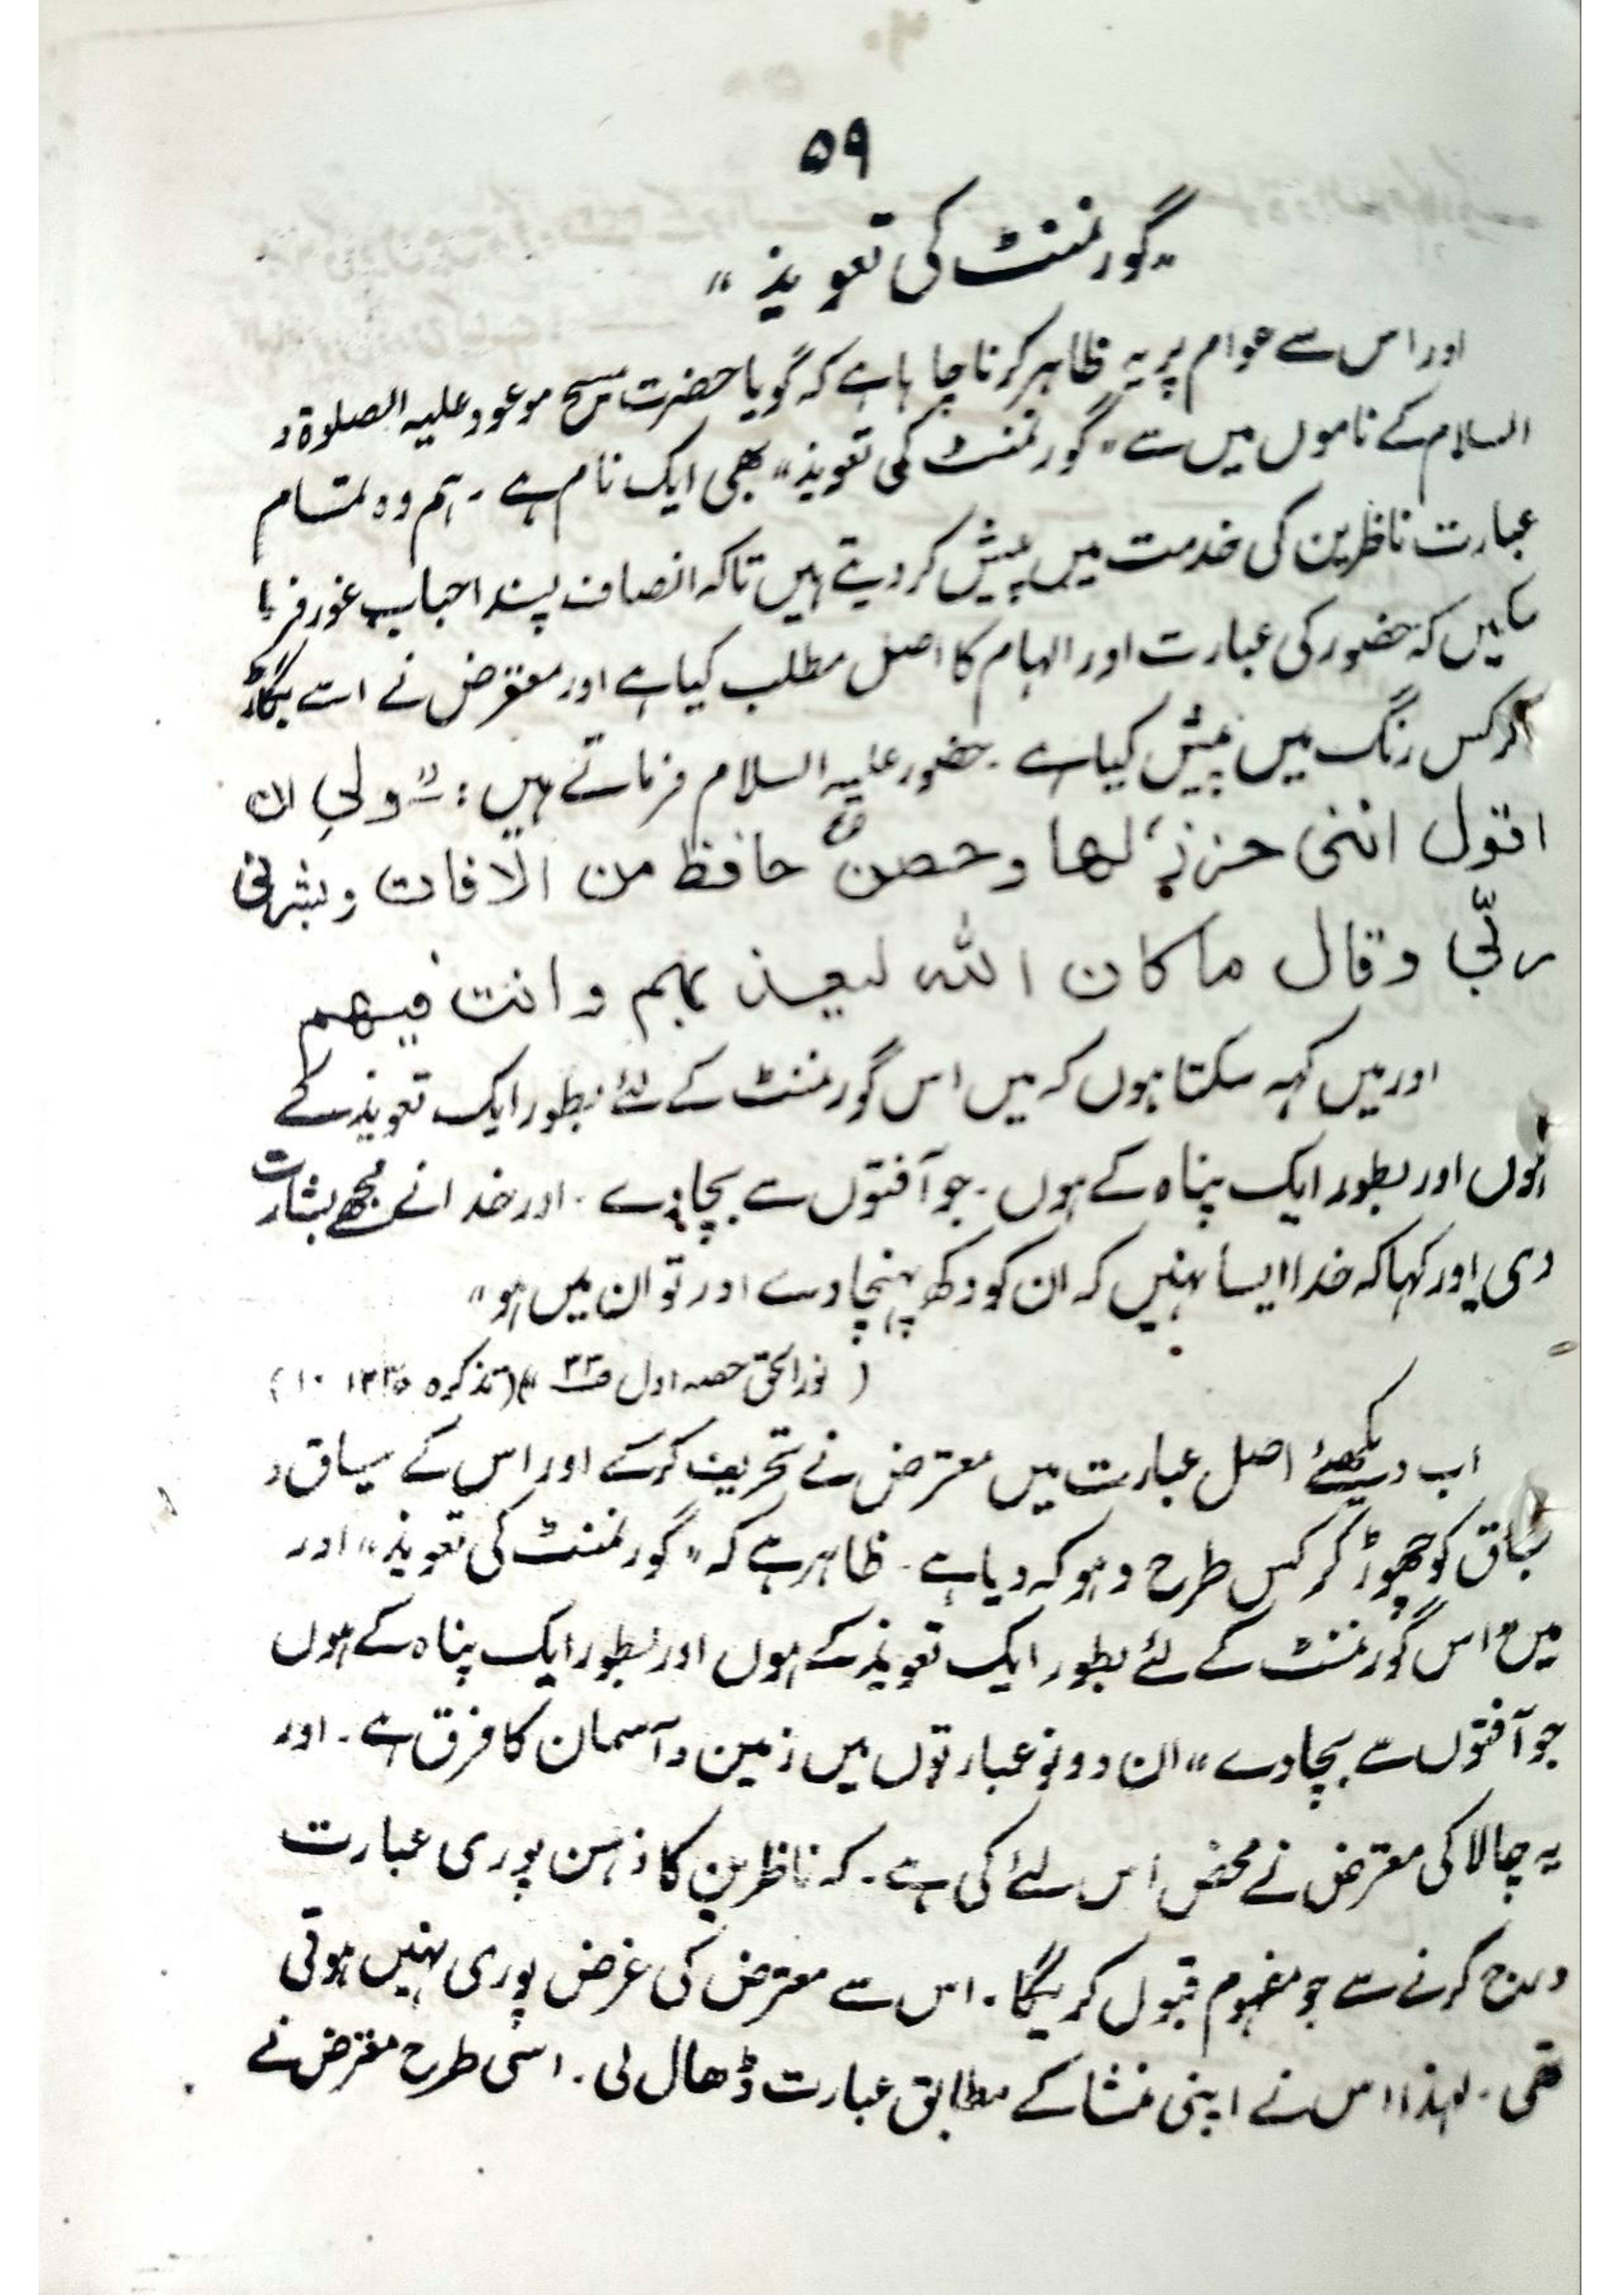 ۵۹
"گورنمنٹ کی تعویذ"
اور اس سے عوام پر یہ ظاہر کرنا چاہا ہے کہ گویا حضرت مسیح موعود علیہ الصلوۃ و
السلام کے ناموں میں سے "گورنمنٹ کی تعویذ" بھی ایک نام ہے ۔ ہم وہ تمام
عبارت ناظرین کی خدمت میں پیش کر دیتے ہیں تاکہ انصاف پسند احباب غور فرما
ئیں کہ حضور کی عبارت اور الہام کا اصل مطلب کیا ہے اور معترض نے اسے بگاڑ
کر کس رنگ میں پیش کیا ہے ۔ حضور علیہ السلام فرماتے ہیں :۔ "ولی ان
اقول اننی حرز لھا وحصن حافظ من الآفات وبشرنی
ربّی وقال ماکان اللہ لیعذبہم وانت فیھم
اور میں کہہ سکتا ہوں کہ میں اس گورنمنٹ کے لئے بطور ایک تعویذ کے
ہوں اور بطور ایک پناہ کے ہوں ۔ جو آفتوں سے بچاوے ۔ اور خدا نے مجھے بشارت
دی اور کہا کہ خدا ایسا نہیں کہ ان کو دکھ پہنچاوے اور تو ان میں ہو"
( نور الحق حصہ اول ص۳۳ ) (تذکرہ
اب دیکھئے اصل عبارت میں معترض نے تحریف کرکے اور اس کے سیاق و
سباق کو چھوڑ کر کس طرح دہوکہ دیا ہے ۔ ظاہر ہے کہ "گورنمنٹ کی تعویذ" اور
میں "اس گورنمنٹ کے لئے بطور ایک تعویذ کے ہوں اور بطور ایک پناہ کے ہوں
جو آفتوں سے بچاوے" ان دونو عبارتوں میں زمین و آسمان کا فرق ہے ۔ اور
یہ چالاکی معترض نے محض اس لئے کی ہے ۔ کہ ناظرین کا ذہن پوری عبارت
درج کرنے سے جو مفہوم قبول کریگا ۔ اس سے معترض کی غرض پوری نہیں ہوتی
تھی ۔ لہذا اس نے اپنی منشا کے مطابق عبارت ڈھال لی ۔ اسی طرح معترض نے